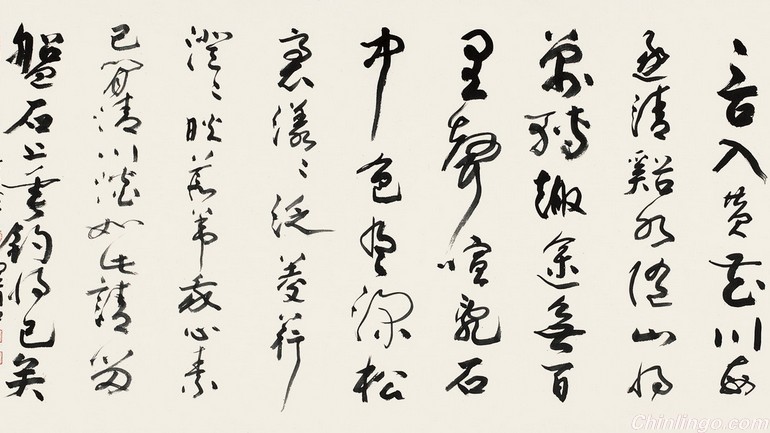 言入黄花川每
逐清谿水随山将
萬轉趣途無百
里聲喧亂石
中色静深松
裏漾〻泛菱荇
澄〻映葭葦我心素
已閒清川澹如此請留
盤石上垂釣将已矣
Chinlingo.com